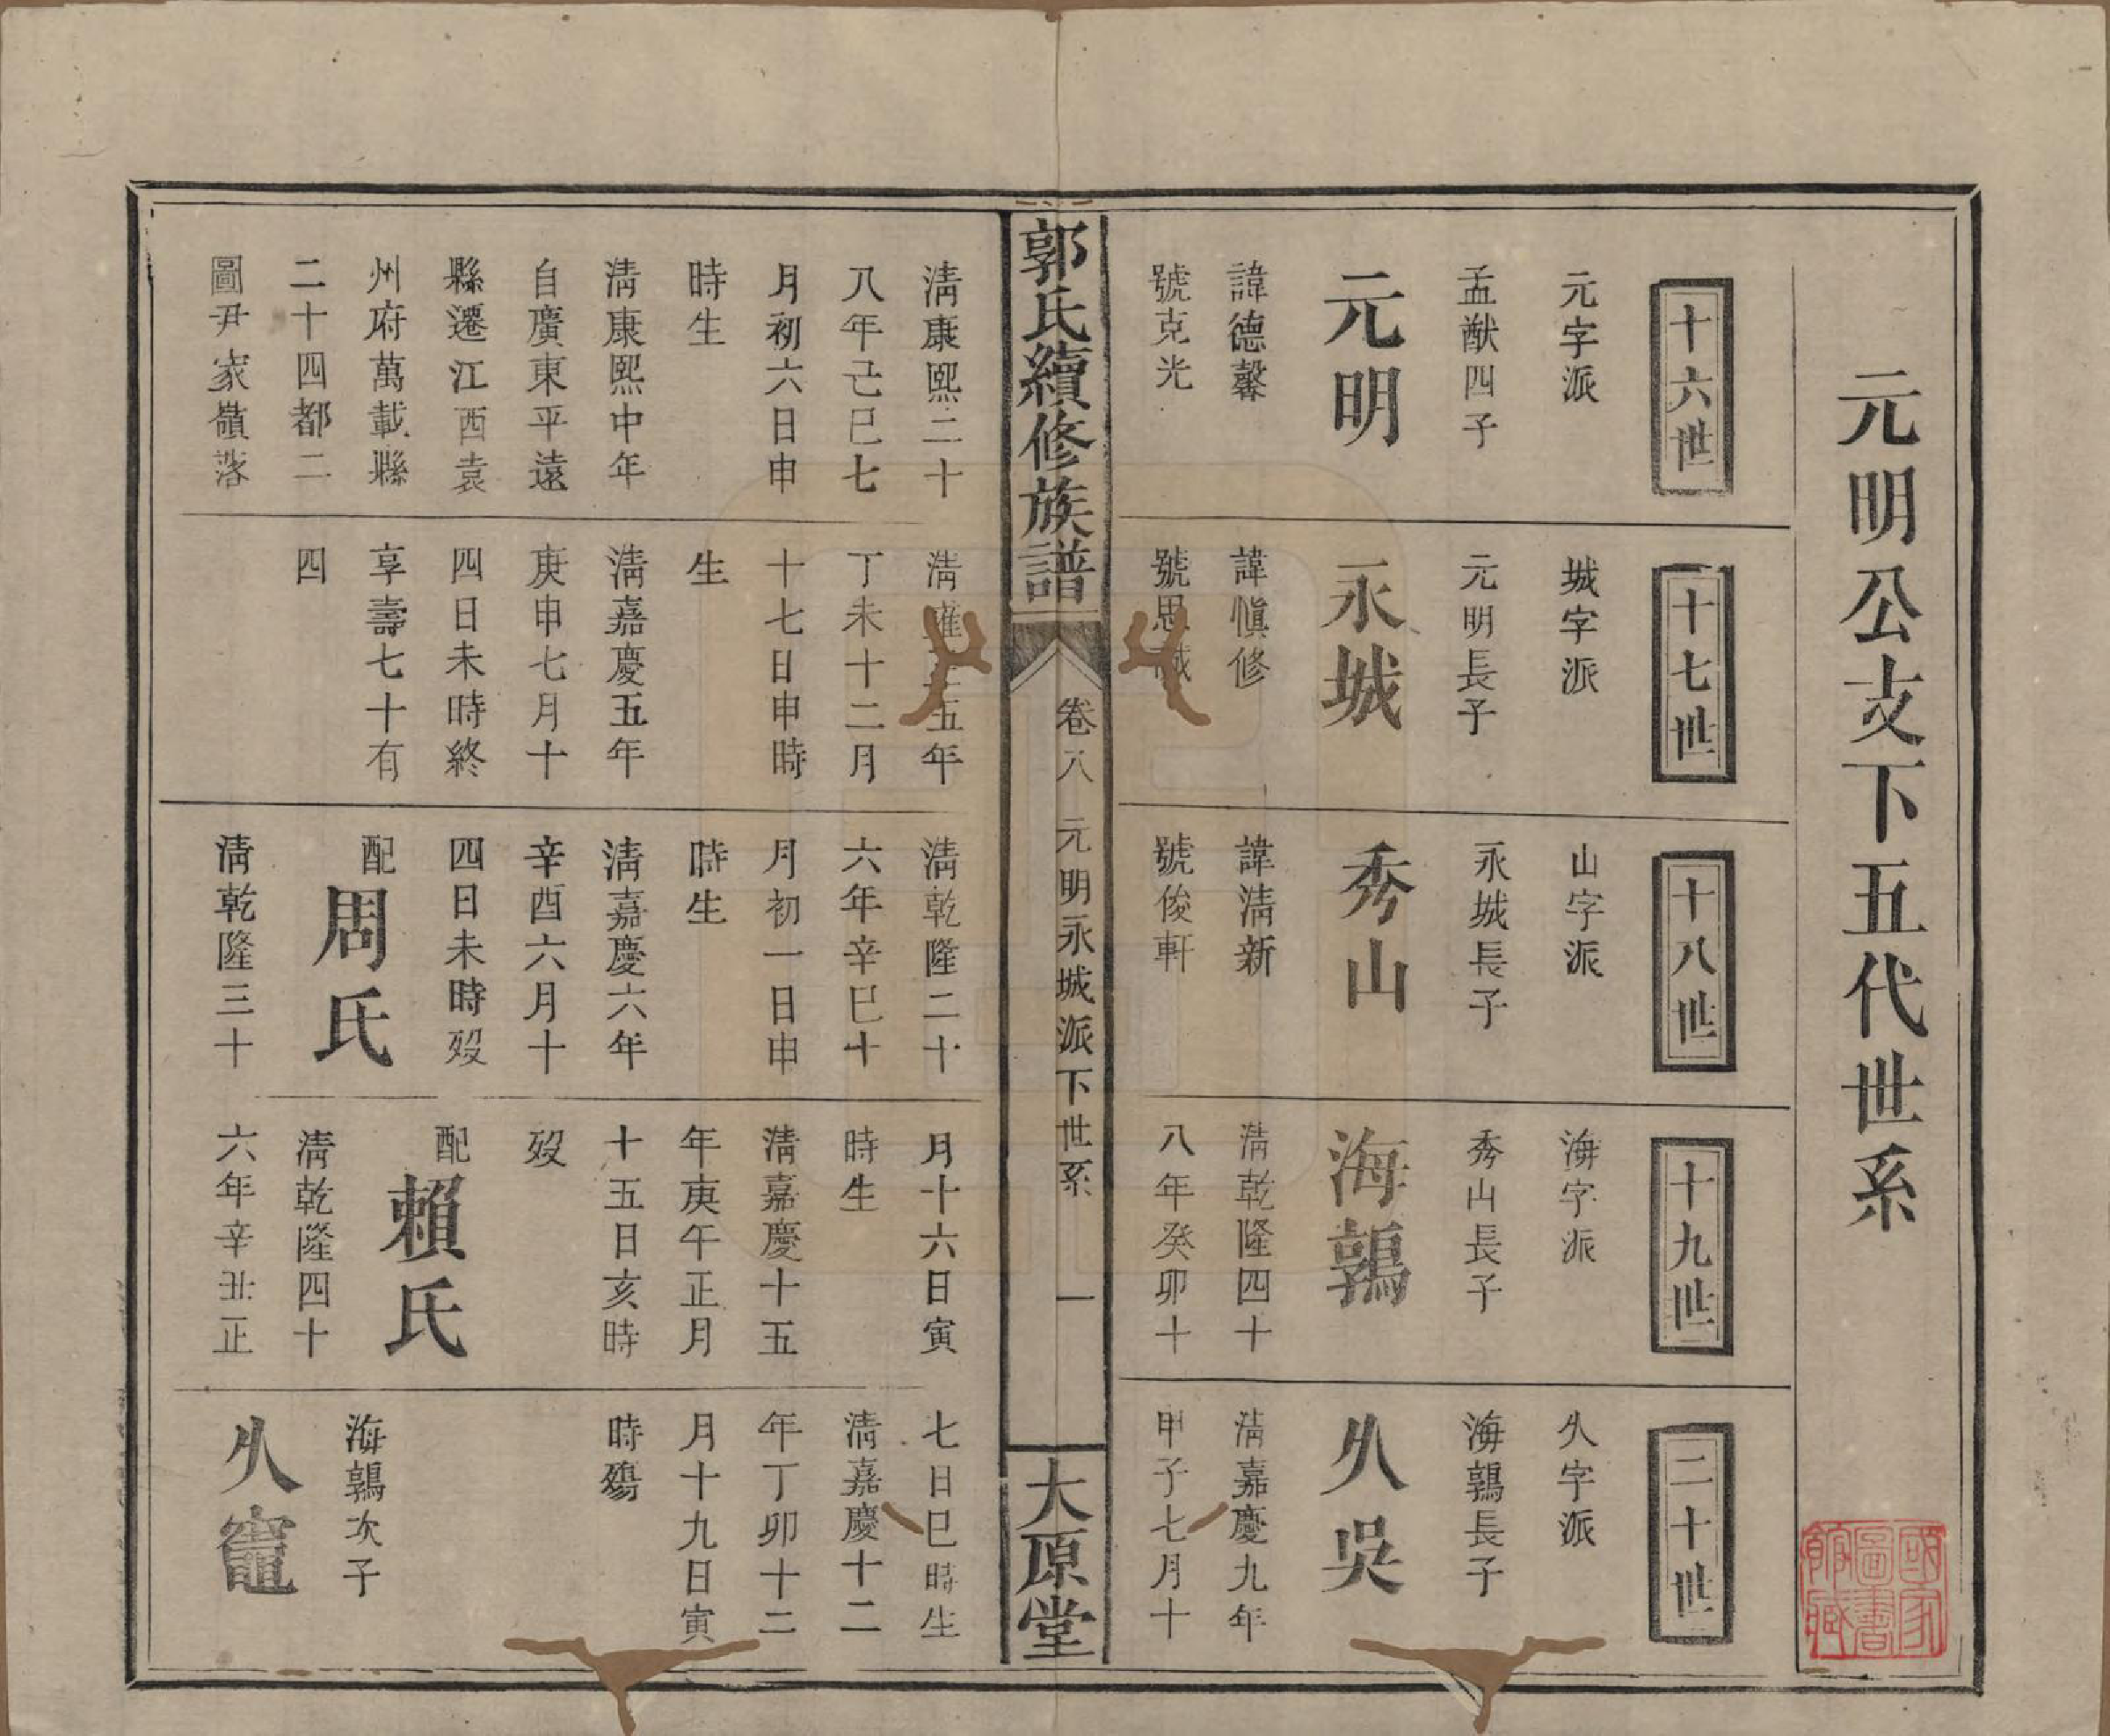 元明公支下五代世系
十六世
元字派
孟猷四子
元明
諱德馨
號克光
十七世
城字派
元明長子
永城
諱愼修
號思
十八世
山字派
永城長子
秀山
諱淸新
號俊軒
十九世
海字派
秀山長子
海鶉
淸乾隆四十
八年癸卯十
二十世
久字派
海鶉長子
久吳
淸嘉慶九年
甲子七月十
郭氏續修族譜
卷八
元明永城派下世系
一
大原堂
淸康熙二十
八年己巳七
月初六日申
時生
淸康熙中年
自廣東平遠
縣遷江西袁
州府萬載縣
二十四都二
圖尹家嶺落
淸雍正五年
丁未十二月
十七日申時
生
淸嘉慶五年
庚申七月十
四日未時終
享壽七十有
四
淸乾隆二十
六年辛巳十
月初一日申
時生
淸嘉慶六年
辛酉六月十
四日未時歿
配
周氏
淸乾隆三十
月十六日寅
時生
淸嘉慶十五
年庚午正月
十五日亥時
歿
配
賴氏
淸乾隆四十
六年辛丑正
七日巳時生
淸嘉慶十二
年丁卯十二
月十九日寅
時殤
海鶉次子
久竈
國家
圖書
館藏